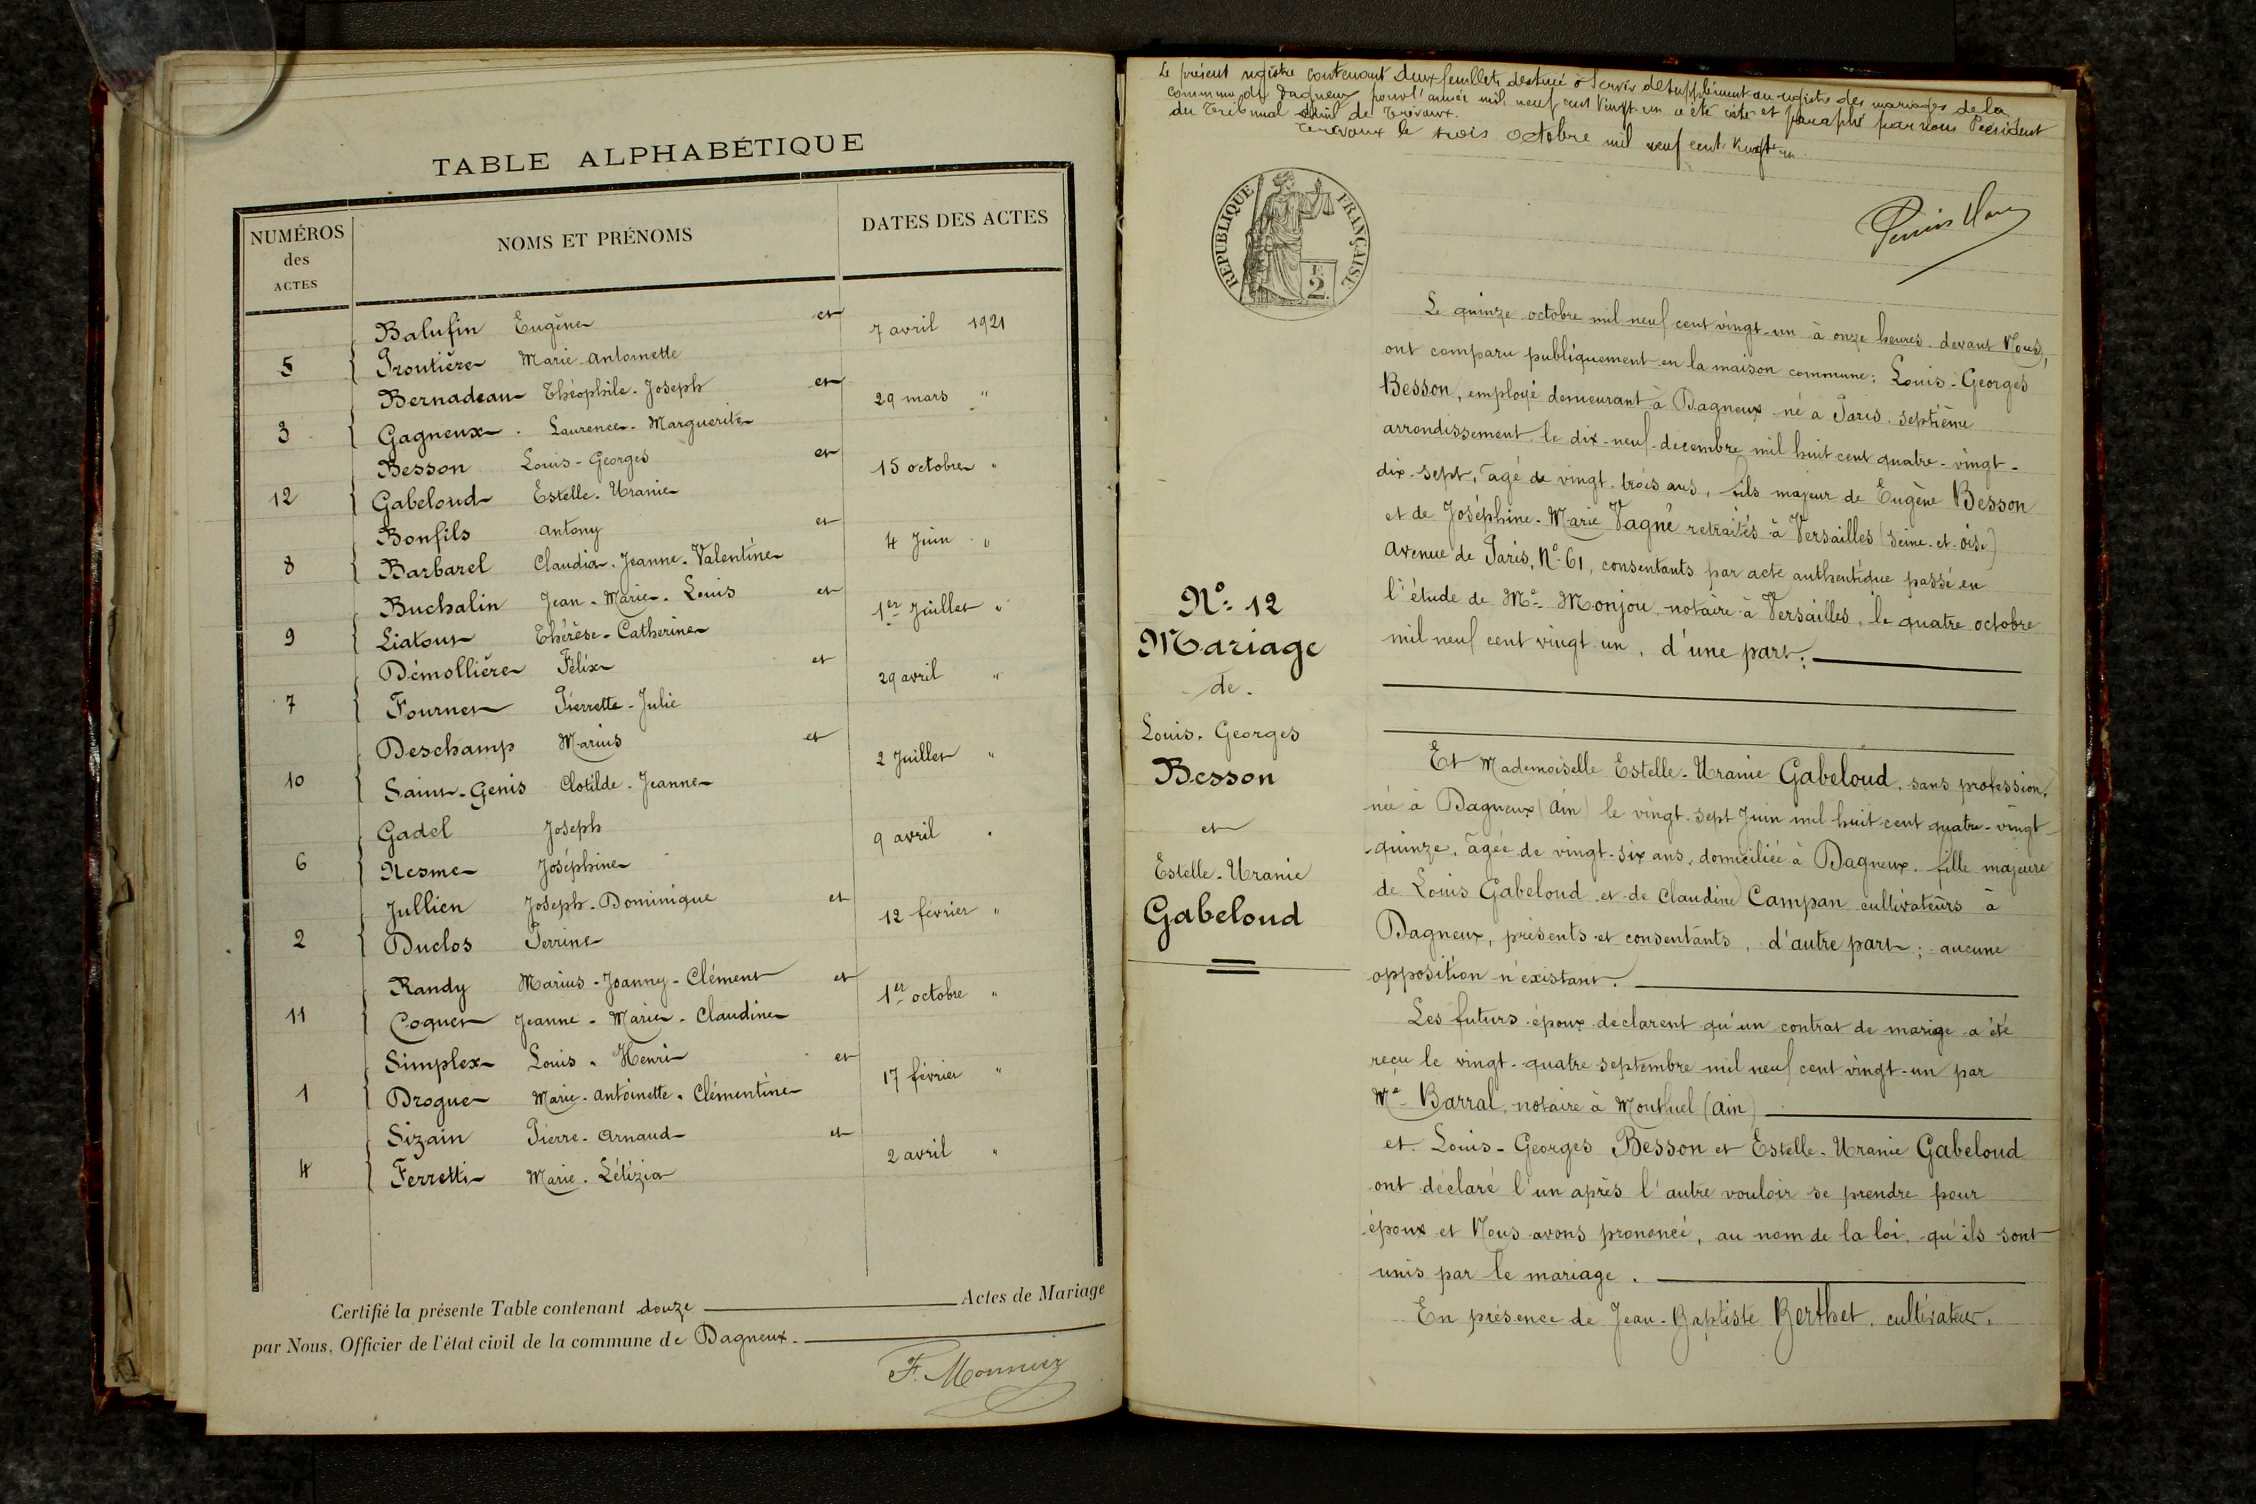 TABLE ALPHABÉTIQUE
NUMÉROS des ACTES
NOMS ET PRÉNOMS
DATES DES ACTES
Balufin Eugène et
7 avril 1921
5
Troutière Marie Antoinette
Bernadeau Théophile-Joseph et
29 mars "
3
Gagneux Laurence-Marguerite
Besson Louis-Georges et
15 octobre "
12
Gabeloud Estelle-Uranie
Bonfils Antony et
4 Juin "
8
Barbarel Claudia-Jeanne-Valentine
Buchalin Jean-Marie-Louis et
1er Juillet "
9
Liatout Thérèse-Catherine
Démollière Félix et
29 avril "
7
Fournet Pierrette-Julie
Deschamp Marius et
2 Juillet "
10
Saint-Genis Clotilde-Jeanne
Gadel Joseph
9 avril "
6
Nesme Joséphine
Jullien Joseph-Dominique et
12 février "
2
Duclos Perrine
Randy Marius-Joanny-Clément et
1er octobre "
11
Coquet Jeanne-Marie-Claudine
Simplex Louis-Henri et
17 février "
1
Drogue Marie-Antoinette-Clémentine
Sizain Pierre-Arnaud et
2 avril "
4
Ferretti Marie-Létizia
Certifié la présente Table contenant douze Actes de Mariage
par Nous, Officier de l'état civil de la commune de Dagneux.
F. Monnier
Le présent registre contenant deux feuillets destiné à servir de supplément au registre des mariages de la
commune de Dagneux pour l'année mil neuf cent vingt un a été coté et paraphé par nous Président
du Tribunal civil de Trévoux.
Trévoux le trois octobre mil neuf cent vingt un
RÉPUBLIQUE FRANÇAISE
2
Le quinze octobre mil neuf cent vingt-un à onze heures devant Nous,
ont comparu publiquement en la maison commune: Louis-Georges
Besson, employé demeurant à Dagneux né à Paris, septième
arrondissement le dix-neuf décembre mil huit cent quatre-vingt-
dix-sept, âgé de vingt-trois ans, fils majeur de Eugène Besson
et de Joséphine-Marie Vagné retraités à Versailles (Seine-et-Oise)
avenue de Paris, No 61, consentants par acte authentique passé en
l'étude de Me Monjou notaire à Versailles, le quatre octobre
mil neuf cent vingt un, d'une part;
No 12
Mariage
de
Louis-Georges
Besson
et
Estelle-Uranie
Gabeloud
Et Mademoiselle Estelle-Uranie Gabeloud, sans profession,
née à Dagneux (Ain) le vingt-sept Juin mil huit cent quatre-vingt-
quinze, âgée de vingt-six ans, domiciliée à Dagneux, fille majeure
de Louis Gabeloud et de Claudine Campan cultivateurs à
Dagneux, présents et consentants, d'autre part; aucune
opposition n'existant.
Les futurs époux déclarent qu'un contrat de mariage a été
reçu le vingt-quatre septembre mil neuf cent vingt-un par
Me Barral, notaire à Montluel (Ain)
et Louis-Georges Besson et Estelle-Uranie Gabeloud
ont déclaré l'un après l'autre vouloir se prendre pour
époux et Nous avons prononcé, au nom de la loi, qu'ils sont
unis par le mariage.
En présence de Jean-Baptiste Berthet, cultivateur,